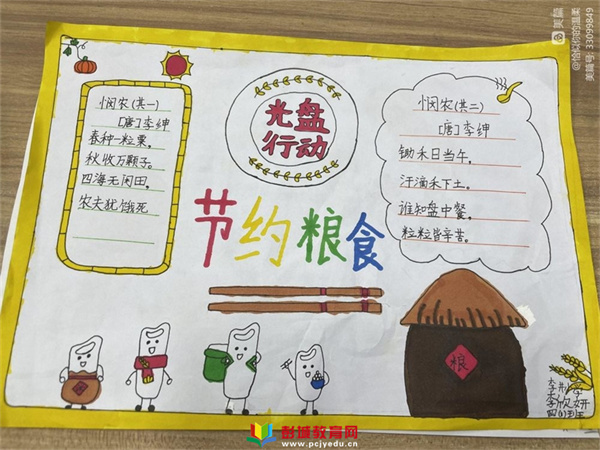 悯农(其一)
[唐]李绅
春种一粒粟,
秋收万颗子。
四海无闲田,
农夫犹饿死
光盘
行动
悯农(其二)
[唐]李绅
锄禾日当午,
汗滴禾下土。
谁知盘中餐,
粒粒皆辛苦。
节约粮食
粮
李欣妍
四(1)班
美篇
@恰似你的温柔
美篇号:33099849
彭城教育网
www.pcjyedu.cn